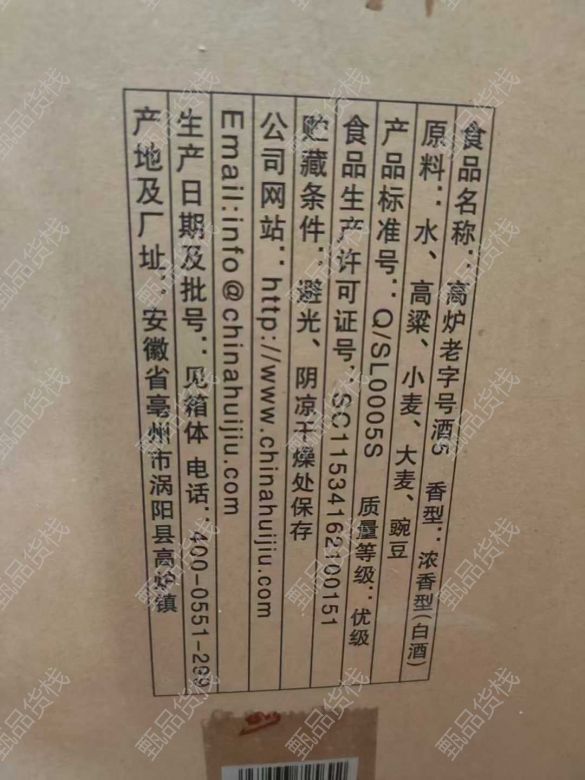 食品名称：高炉老字号酒5 香型：浓香型(白酒)
原料：水、高粱、小麦、大麦、豌豆
产品标准号：Q/SL0005S 质量等级：优级
食品生产许可证号：SC11534162100151
贮藏条件：避光、阴凉干燥处保存
公司网站：http://www.chinahuijiu.com
Email:info@chinahuijiu.com
生产日期及批号：见箱体 电话：400-0551-299
产地及厂址：安徽省亳州市涡阳县高炉镇
甄品货栈